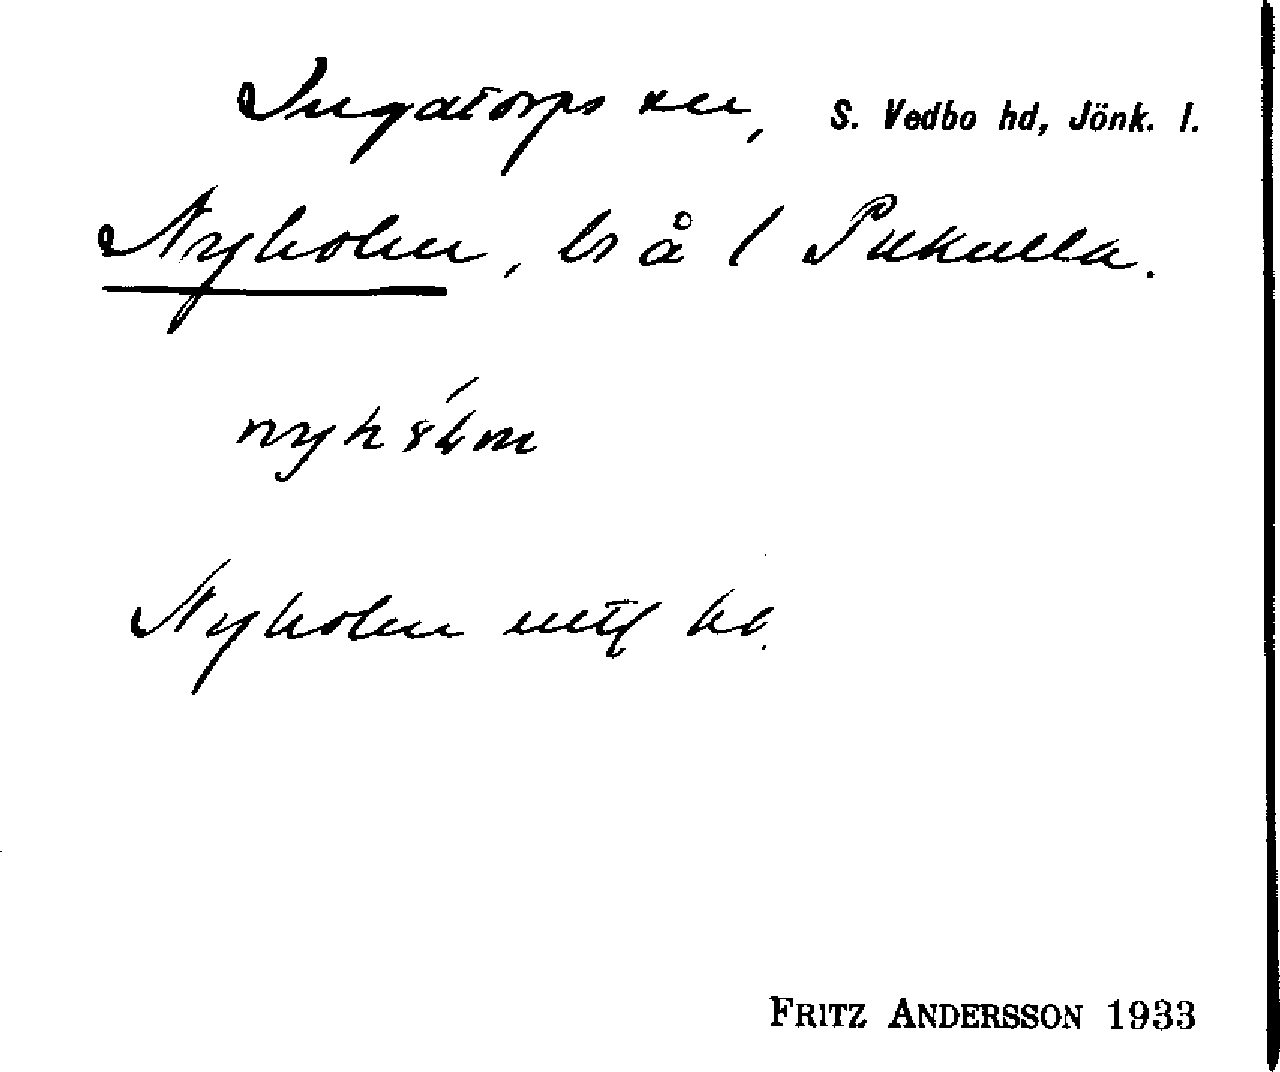 Ingatorps sn, S. Vedbo hd, Jönk. l.
Nyholm, ls å 1 Pukulla.
Nyholm mtf
FRITZ ANDERSSON 1933